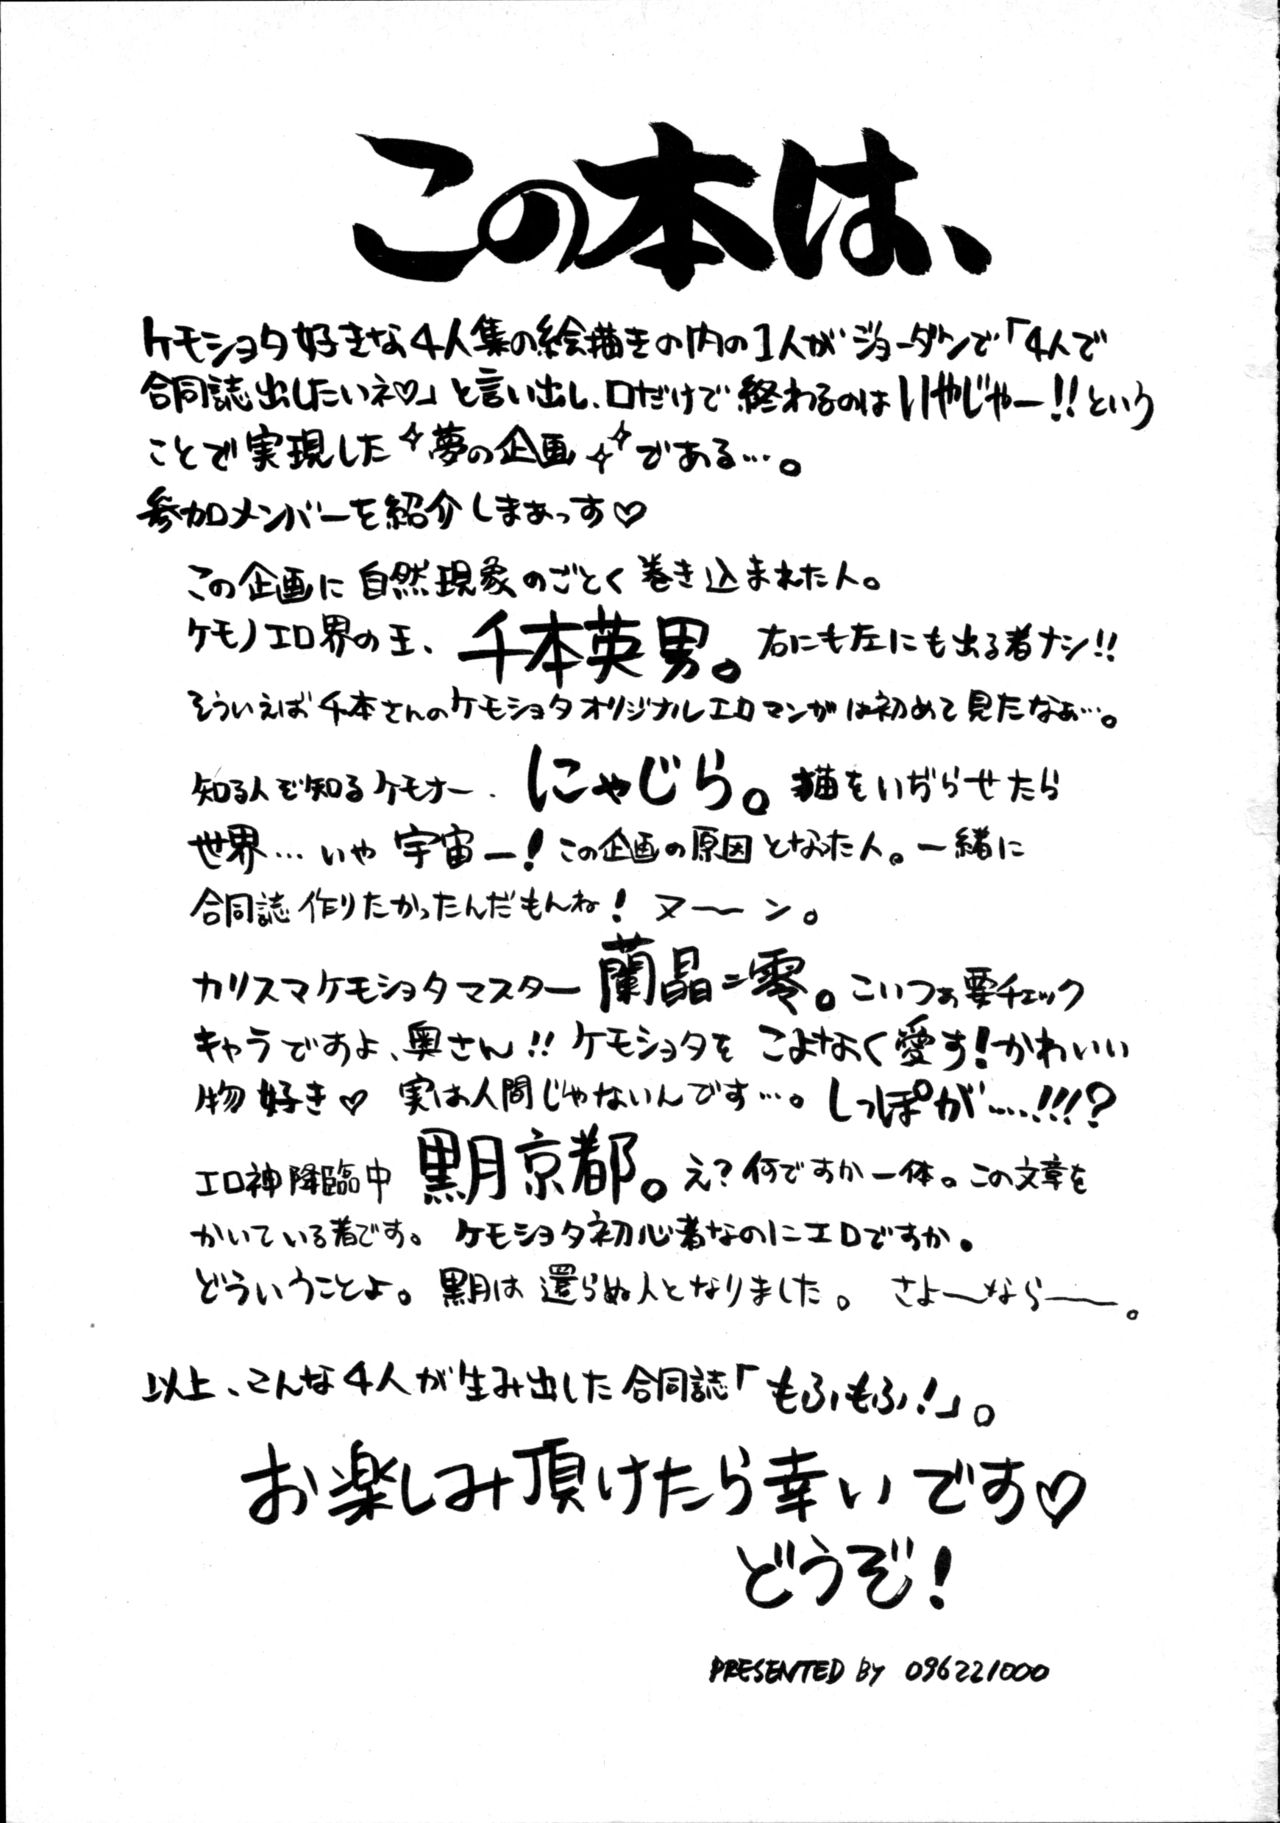 この本は、
ケモショタ好きな4人集の絵描きの内の1人がジョーダンで「4人で
合同誌出したいネ♡」と言い出し、口だけで終わるのはいやじゃー!!という
ことで実現した✧夢の企画✧✧である…。
参加メンバーを紹介しまぁっす♡
この企画に自然現象のごとく巻き込まれた人。
ケモノエロ界の王、千本英男。右にも左にも出る者ナシ!!
そういえば千本さんのケモショタオリジナルエロマンガは初めて見たなぁ…。
知る人ぞ知るケモナー、にゃじら。猫をいぢらせたら
世界…いや宇宙一!この企画の原因となった人。一緒に
合同誌作りたかったんだもんね!ヌ〜ン。
カリスマケモショタマスター蘭晶=零。こいつぁ要チェック
キャラですよ、奥さん!!ケモショタをこよなく愛す!かわいい
物好き♡実は人間じゃないんです…。しっぽが……!!!?
エロ神降臨中黒月京都。え?何ですか一体。この文章を
かいている者です。ケモショタ初心者なのにエロですか。
どういうことよ。黒月は還らぬ人となりました。さよ〜なら〜。
以上、こんな4人が生み出した合同誌「もふもふ!」。
お楽しみ頂けたら幸いです♡
どうぞ!
PRESENTED BY 096221000